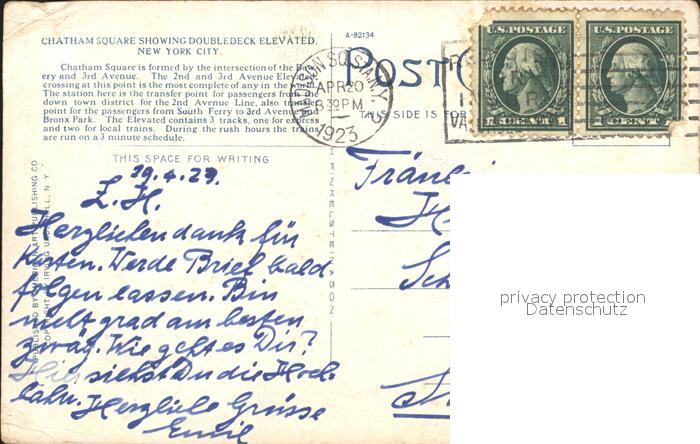 CHATHAM SQUARE SHOWING DOUBLEDECK ELEVATED.
NEW YORK CITY.
Chatham Square is formed by the intersection of the Bow-
ery and 3rd Avenue. The 2nd and 3rd Avenue Elevated
crossing at this point is the most complete of any in the world.
The station here is the transfer point for passengers from the
down town district for the 2nd Avenue Line, also transfer
point for the passengers from South Ferry to 3rd Avenue and
Bronx Park. The Elevated contains 3 tracks, one for express
and two for local trains. During the rush hours the trains
are run on a 3 minute schedule.
THIS SPACE FOR WRITING
19.4.23.
L. H.
Herzlichen dank für
Karten. Werde Brief bald
folgen lassen. Bin
nicht grad am besten
zwäg. Wie geht es Dir?
Hier siehst Du die Hoch
bahn. Herzliche Grüsse
Emil
PUBLISHED BY AMERICAN ART PUBLISHING CO.
COPYRIGHT BY IRVING UNDERHILL, N. Y.
H. FINKELSTEIN & SON
A-82134
POST C
THIS SIDE IS FOR
MADISON SQ. STA. N.Y.
APR 20
6 39 PM
1923
U.S. POSTAGE
1 CENT 1
U.S. POSTAGE
1 CENT 1
Fräulein
H
Sch
privacy protection
Datenschutz